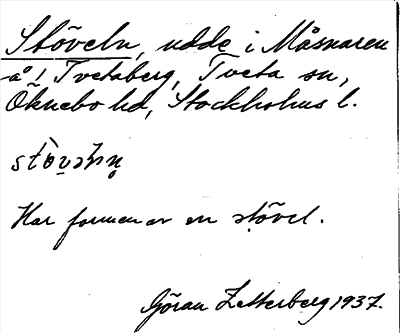 Stöveln, udde i Måsnaren
å! Tvetaberg, Tveta sn,
Öknebo hd, Stockholms l.
Har formen av en stövel.
Göran Zetterberg 1937.